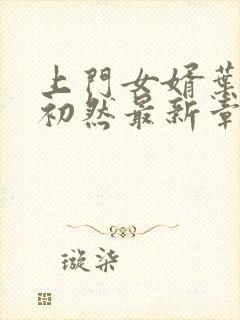 上門女婿葉
初然最新章
璇柒